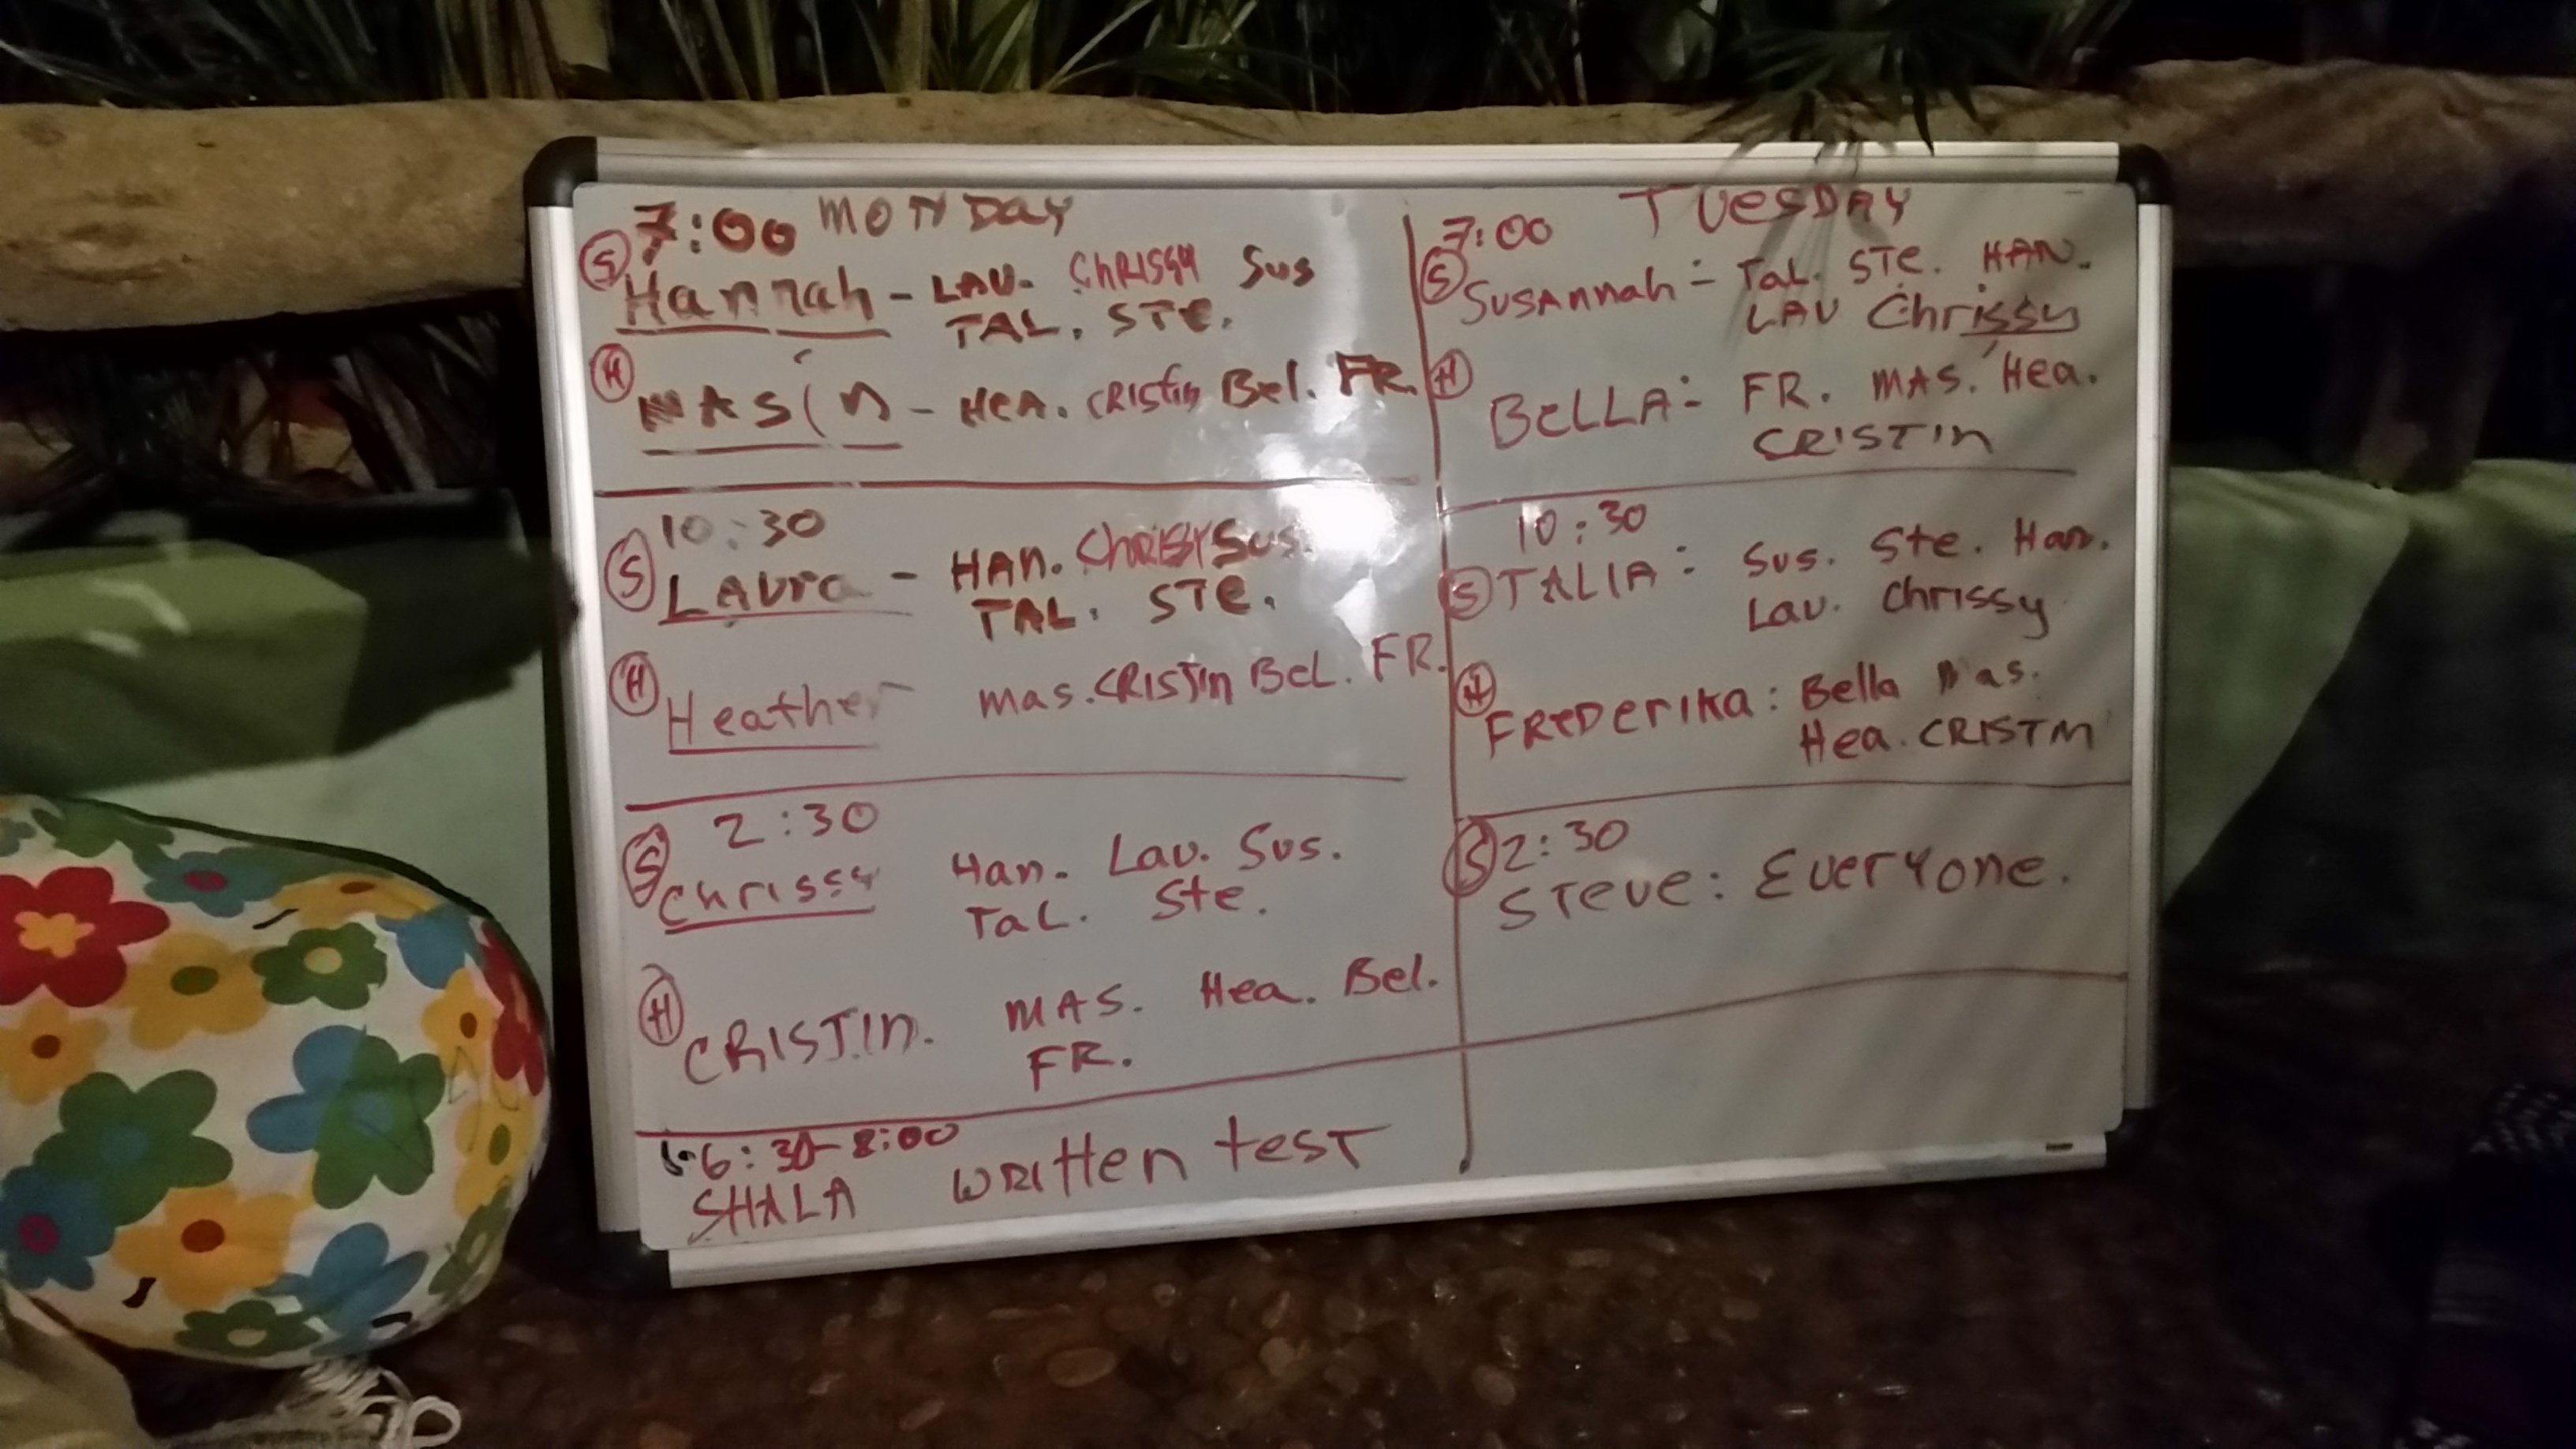 7:00 MONDAY
S Hannah - LAU. CHRISSY Sus
TAL. STe.
H MASIN - HeA. CRIStin Bel. FR.
10:30
S LAUra - HAN. ChRISSY Sus.
TAL. STe.
H Heather - mas. CRISTIn Bel. FR.
2:30
S Chrissy Han. Lau. Sus.
TaL. Ste.
H CRISTIn. MAS. Hea. Bel.
FR.
6:30-8:00
SHALA WRItten test
7:00 TUeSDAY
S SUSAnnah - Tal. STe. HAN.
LAU Chrissy
H BeLLA: FR. MAS. Hea.
CRISTIn
10:30
S TALIA: Sus. Ste. Han.
Lau. Chrissy
H FReDerIKa: Bella Mas.
Hea. CRISTIN
S 2:30
STeve: EverYone.